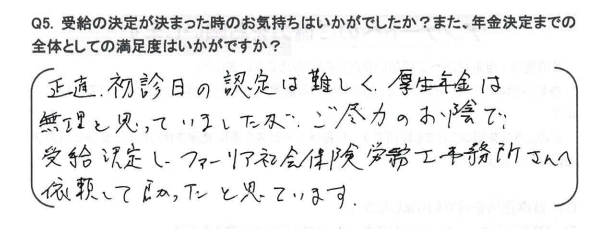 Q5. 受給の決定が決まった時のお気持ちはいかがでしたか？また、年金決定までの
全体としての満足度はいかがですか？
正直、初診日の認定は難しく、厚生年金は
無理と思っていましたが、ご尽力のお陰で
受給決定し ファーリア社会保険労務士事務所さんへ
依頼して良かったと思ています。